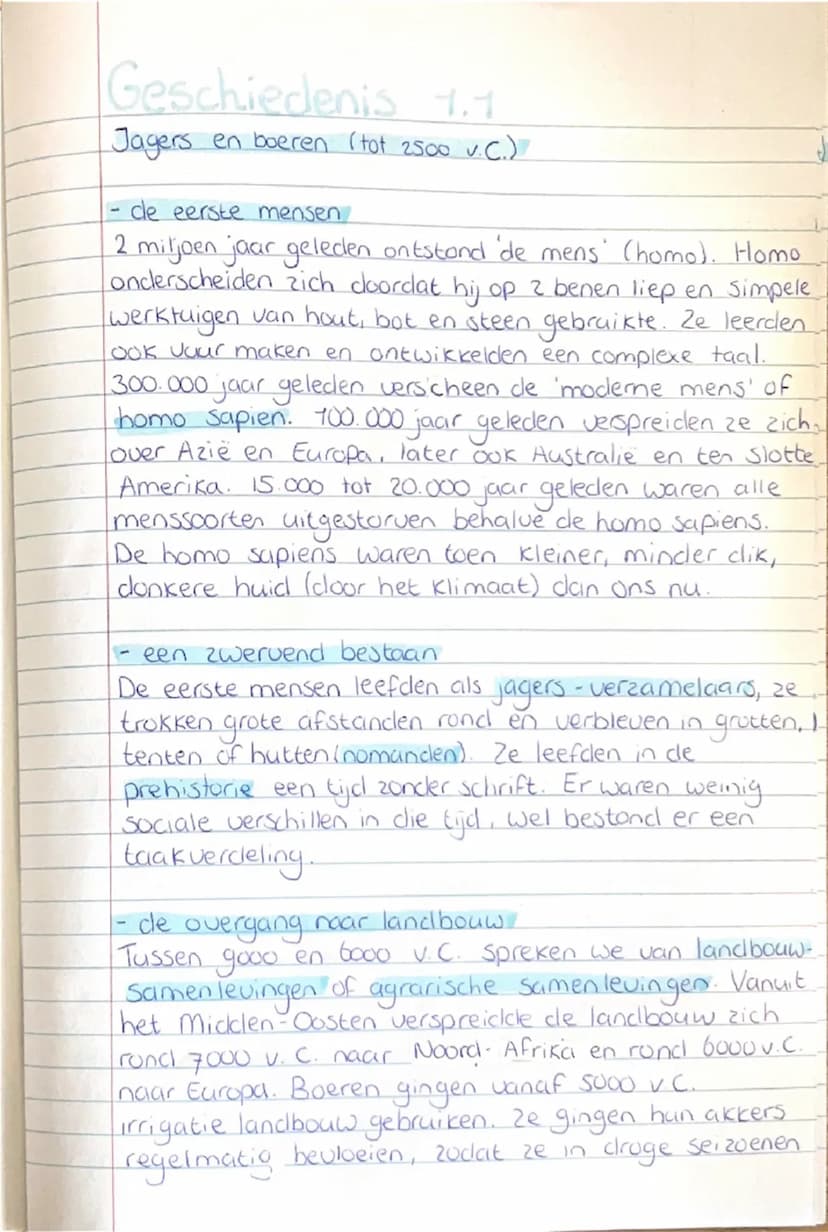 Geschiedenis 1.1
Jagers en boeren (tot 2500 v.C.)
- de eerste mensen
2 miljoen jaar geleden ontstond 'de mens' (homo). Homo
onderscheiden zich doordat hij op 2 benen liep en simpele
werktuigen van hout, bot en steen gebruikte. Ze leerden
ook vuur maken en ontwikkelden een complexe taal.
300.000 jaar geleden verscheen de 'moderne mens' of
homo sapien. 100.000 jaar geleden verspreiden ze zich
over Azië en Europa, later ook Australië en ten slotte
Amerika. 15.000 tot 20.000 jaar geleden waren alle
menssoorten uitgestorven behalve de homo sapiens.
De homo sapiens waren toen kleiner, minder dik,
donkere huid (door het klimaat) dan ons nu.
- een zwervend bestaan
De eerste mensen leefden als jagers-verzamelaars, ze
trokken grote afstanden rond en verbleven in grotten,
tenten of hutten (nomanden). Ze leefden in de
prehistorie een tijd zonder schrift. Er waren weinig
sociale verschillen in die tijd, wel bestond er een
taakverdeling.
- de overgang naar landbouw
Tussen 9000 en 6000 v.C. spreken we van landbouw-
samenlevingen of agrarische samenlevingen. Vanuit
het Midden-Oosten verspreidde de landbouw zich
rond 7000 v.C. naar Noord-Afrika en rond 6000 v.C.
naar Europa. Boeren gingen vanaf 5000 v.C.
irrigatie landbouw gebruiken. Ze gingen hun akkers
regelmatig bevloeien, zodat ze in droge seizoenen